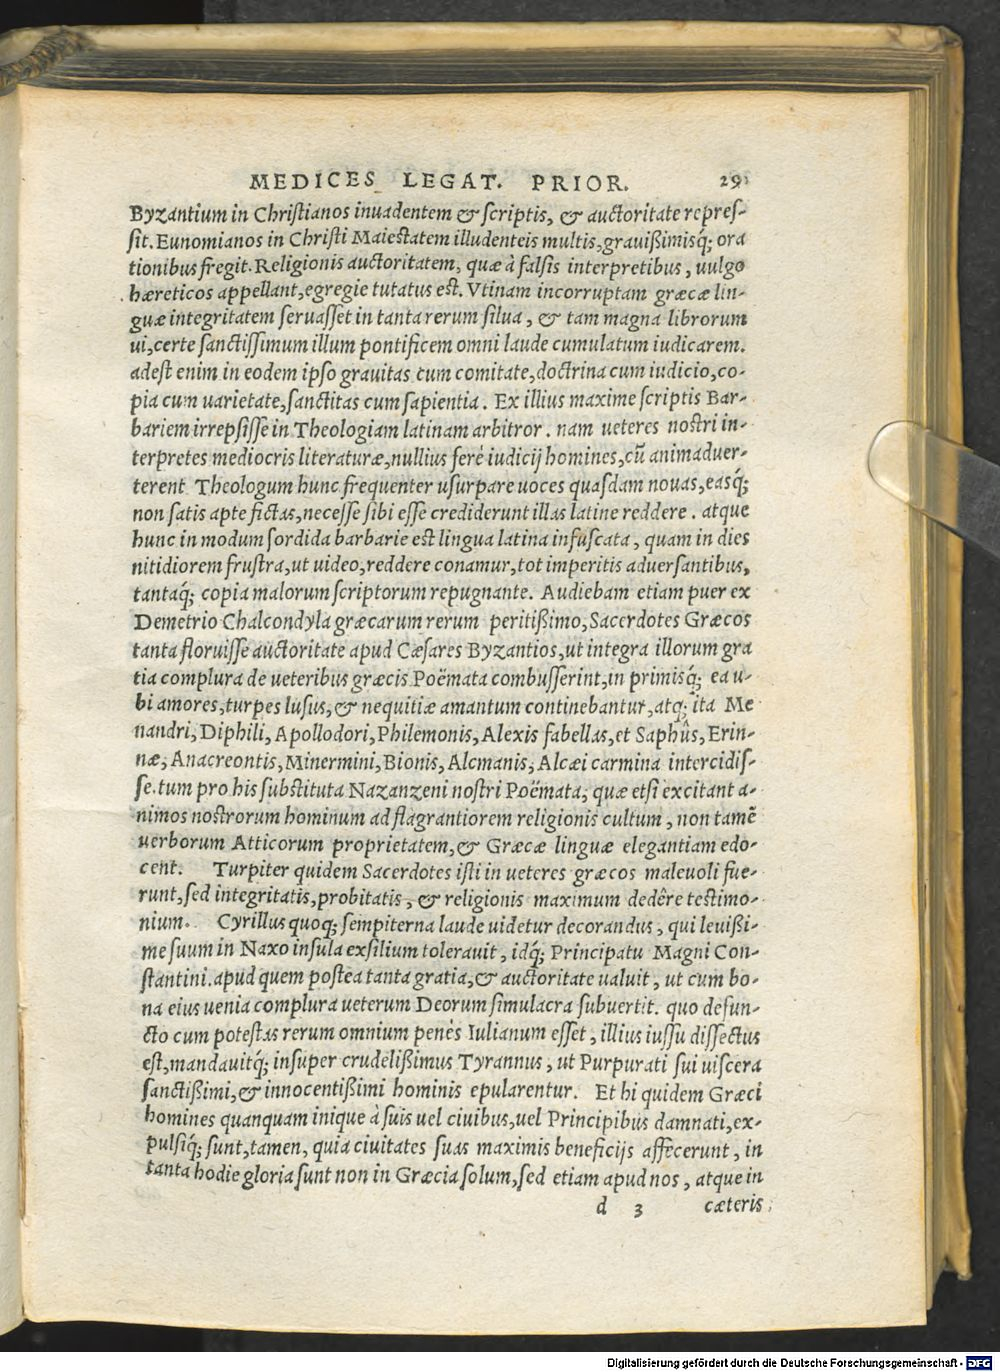 MEDICES LEGAT. PRIOR. 29
Byzantium in Christianos inuadentem & scriptis, & auctoritate repres-
sit. Eunomianos in Christi Maiestatem illudenteis multis, grauißimisq́; ora
tionibus fregit. Religionis auctoritatem, quæ à falsis interpretibus, uulgo
hæreticos appellant, egregie tutatus est. Vtinam incorruptam græcæ lin-
guæ integritatem seruasset in tanta rerum silua, & tam magna librorum
ui, certe sanctissimum illum pontificem omni laude cumulatum iudicarem.
adest enim in eodem ipso grauitas cum comitate, doctrina cum iudicio, co-
pia cum uarietate, sanctitas cum sapientia. Ex illius maxime scriptis Bar-
bariem irrepsisse in Theologiam latinam arbitror. nam ueteres nostri in-
terpretes mediocris literaturæ, nullius ferè iudicij homines, cū animaduer-
terent Theologum hunc frequenter usurpare uoces quasdam nouas, easq́;
non satis apte fictas, necesse sibi esse crediderunt illas latine reddere. atque
hunc in modum sordida barbarie est lingua latina infuscata, quam in dies
nitidiorem frustra, ut uideo, reddere conamur, tot imperitis aduersantibus,
tantaq́; copia malorum scriptorum repugnante. Audiebam etiam puer ex
Demetrio Chalcondyla græcarum rerum peritißimo, Sacerdotes Græcos
tanta floruisse auctoritate apud Cæsares Byzantios, ut integra illorum gra
tia complura de ueteribus græcis Poëmata combusserint, in primisq́; ea u-
bi amores, turpes lusus, & nequitiæ amantum continebantur, atq; ita Me
nandri, Diphili, Apollodori, Philemonis, Alexis fabellas, et Saphûs, Erin-
næ, Anacreontis, Minermini, Bionis, Alcmanis, Alcæi carmina intercidis-
se. tum pro his substituta Nazanzeni nostri Poëmata, quæ etsi excitant a-
nimos nostrorum hominum ad flagrantiorem religionis cultum, non tamē
uerborum Atticorum proprietatem, & Græcæ linguæ elegantiam edo-
cent. Turpiter quidem Sacerdotes isti in ueteres græcos maleuoli fue-
runt, sed integritatis, probitatis, & religionis maximum dedêre testimo-
nium. Cyrillus quoq; sempiterna laude uidetur decorandus, qui leuißi-
me suum in Naxo insula exsilium tolerauit, idq́; Principatu Magni Con-
stantini. apud quem postea tanta gratia, & auctoritate ualuit, ut cum bo-
na eius uenia complura ueterum Deorum simulacra subuertit. quo defun-
cto cum potestas rerum omnium penès Iulianum esset, illius iussu dissectus
est, mandauitq́; insuper crudelißimus Tyrannus, ut Purpurati sui uiscera
sanctißimi, & innocentißimi hominis epularentur. Et hi quidem Græci
homines quanquam inique à suis uel ciuibus, uel Principibus damnati, ex-
pulsiq́; sunt, tamen, quia ciuitates suas maximis beneficijs affecerunt, in
tanta hodie gloria sunt non in Græcia solum, sed etiam apud nos, atque in
d 3 cæteris
Digitalisierung gefördert durch die Deutsche Forschungsgemeinschaft - DFG